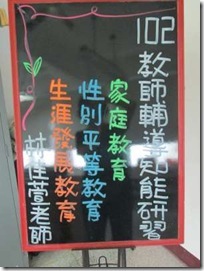 102教師輔導知能研習
家庭教育
性別平等教育
生涯發展教育
林佳萱老師